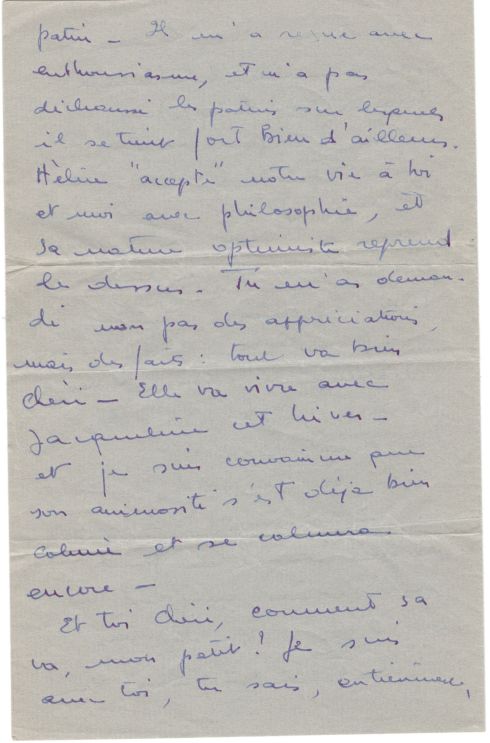 patin - Il m'a reçue avec
enthousiasme, et n'a pas
déchaussé les patins sur lesquels
il se tient fort bien d'ailleurs.
Hélène "accepte" notre vie à toi
et moi avec philosophie, et
sa nature optimiste reprend
le dessus. Tu m'as deman-
dé non pas des appréciations,
mais des faits : tout va bien
chéri - Elle va vivre avec
Jacqueline cet hiver -
et je suis convaincue que
son animosité s'est déjà bien
calmée et se calmera
encore -
Et toi chéri, comment ça
va, mon petit ? Je suis
avec toi, tu sais, entièrement,